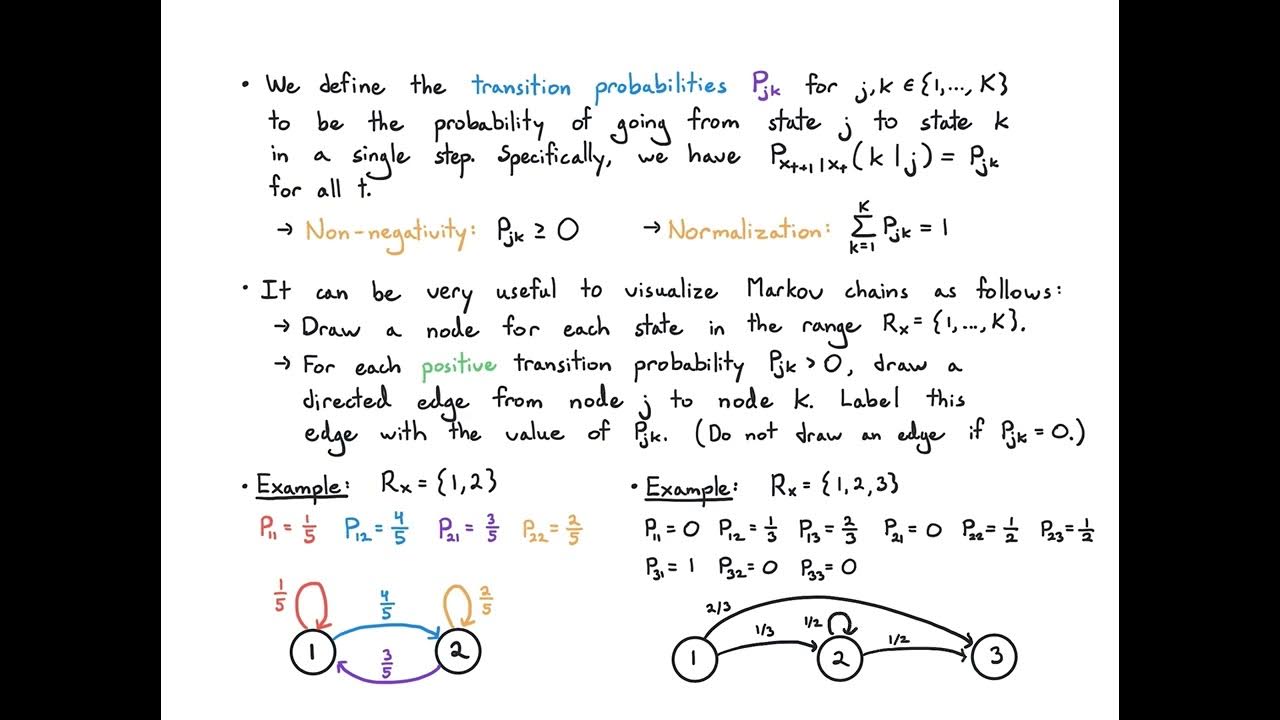 • We define the transition probabilities P_jk for j,k ∈ {1,..., K}
to be the probability of going from state j to state k
in a single step. Specifically, we have P_{X_{t+1}|X_t}(k|j) = P_jk
for all t.
→ Non-negativity: P_jk ≥ 0 → Normalization: Σ_{k=1}^{K} P_jk = 1
• It can be very useful to visualize Markov chains as follows:
→ Draw a node for each state in the range R_x = {1,..., K}.
→ For each positive transition probability P_jk > 0, draw a
directed edge from node j to node k. Label this
edge with the value of P_jk. (Do not draw an edge if P_jk = 0.)
• Example: R_x = {1,2}
P_11 = 1/5 P_12 = 4/5 P_21 = 3/5 P_22 = 2/5
1/5 4/5 2/5
1 2
3/5
• Example: R_x = {1,2,3}
P_11 = 0 P_12 = 1/3 P_13 = 2/3 P_21 = 0 P_22 = 1/2 P_23 = 1/2
P_31 = 1 P_32 = 0 P_33 = 0
2/3 1/3 1/2 1/2
1 2 3